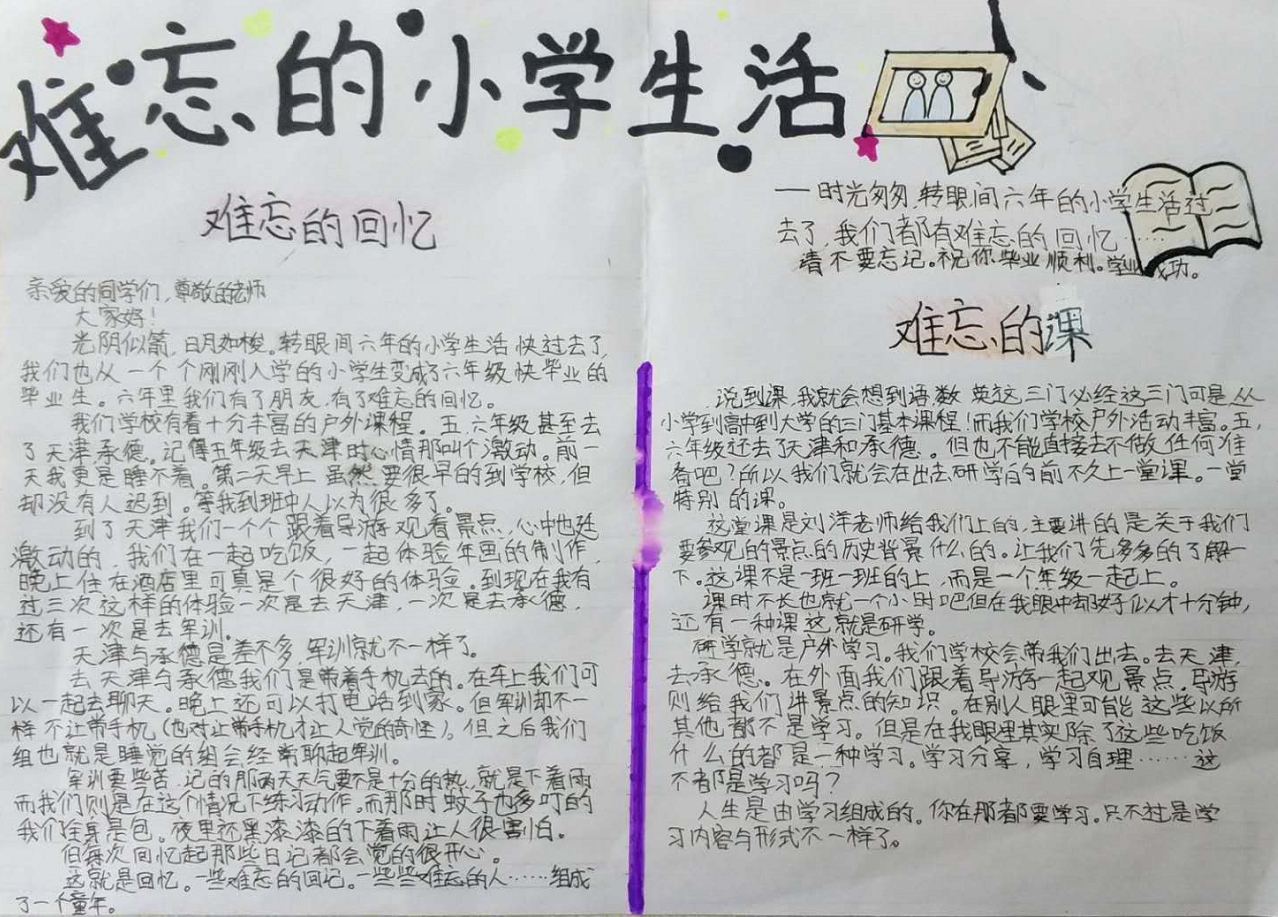 难忘的小学生活
难忘的回忆
亲爱的同学们,尊敬的老师
大家好!
光阴似箭,日月如梭。转眼间六年的小学生活快过去了,
我们也从一个个刚刚入学的小学生变成了六年级快毕业的
毕业生。六年里我们有了朋友,有了难忘的回忆。
我们学校有着十分丰富的户外课程。五、六年级甚至去
了天津承德。记得五年级去天津时心情那叫个激动。前一
天我更是睡不着。第二天早上虽然要很早的到学校,但
却没有人迟到。等我到班中人以为很多了。
到了天津我们一个个跟着导游观看景点,心中也延
激动的,我们在一起吃饭,一起体验年画的制作,
晚上住在酒店里可真是个很好的体验。到现在我有
过三次这样的体验一次是去天津,一次是去承德,
还有一次是去军训。
天津与承德是差不多,军训就不一样了。
去天津与承德我们是带着手机去的。在车上我们可
以一起去聊天。晚上还可以打电话到家。但军训却不一
样不让带手机(也对让带手机才让人觉的奇怪)。但之后我们
组也就是睡觉的组会经常聊起军训。
军训更些苦,记的那两天天气要不是十分的热,就是下着雨
而我们则是在这个情况下练习动作。而那时蚊子也多叮的
我们全身是包。夜里还黑漆漆的下着雨让人很害怕。
但每次回忆起那些日记都会觉的很开心。
这就是回忆。一些难忘的回记。一些些难忘的人……组成
了一个童年。
——时光匆匆,转眼间六年的小学生活过
去了,我们都有难忘的回忆……
请不要忘记。祝你毕业顺利。学业成功。
难忘的课
说到课,我就会想到语,数,英这三门必经这三门可是从
小学到高中到大学的三门基本课程!而我们学校户外活动丰富。五,
六年级还去了天津和承德。但也不能直接去不做任何准
备吧?所以我们就会在出去研学的前不久上一堂课。一堂
特别的课。
这堂课是刘洋老师给我们上的,主要讲的是关于我们
要参观的景点的历史背景什么的。让我们先多多的了解一
下。这课不是一班一班的上,而是一个年级一起上。
课时不长也就一个小时吧但在我眼中却好似才十分钟,
还有一种课这就是研学。
研学就是户外学习。我们学校会带我们出去。去天津,
去承德。在外面我们跟着导游一起观景点,导游
则给我们讲景点的知识。在别人眼里可能这些以所
其他都不是学习。但是在我眼里其实除了这些吃饭
什么的都是一种学习。学习分享,学习自理……这
不都是学习吗?
人生是由学习组成的。你在那都要学习。只不过是学
习内容与形式不一样了。